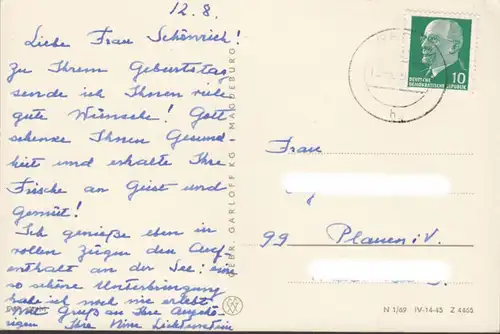 12.8.
Liebe Frau Schönrich!
Zu Ihrem Geburtstag
sende ich Ihnen viele
gute Wünsche! Gott
schenke Ihnen Gesund
heit und erhalte Ihre
Frische an Geist und
Gemüt!
Ich genieße eben in
vollen Zügen den Auf-
enthalt an der See: eine
so schöne Unterbringung
habe ich noch nie erlebt.
Gruß an Ihre Angehö-
rigen. Ihre Lichtenstein
GEBR. GARLOFF KG MAGDEBURG
10
DEUTSCHE
DEMOKRATISCHE REPUBLIK
Frau
99 Plauen i. V.
N 1/69 IV-14-45 Z 4465